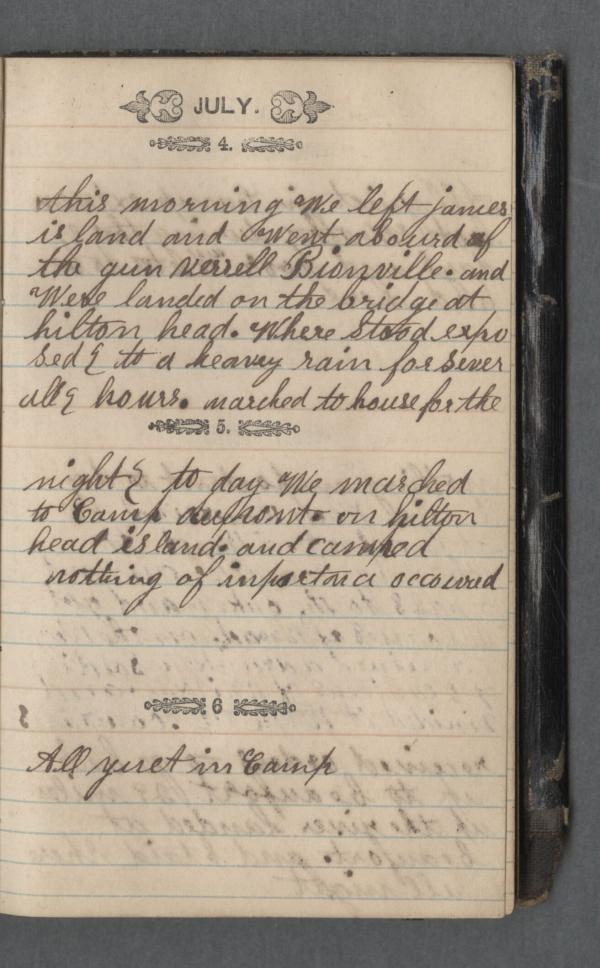 JULY.
4.
this morning We left james
is land and Went abourd of
the gun Verrell Bionville. and
Were landed on the bridge at
hilton head. Where Stood expo
sed & to a heavey rain for sever
all & hours. marched to house for the
5.
night & to day We marched
to Camp on hilton
head island. and camped
nothing of inportance occured
6
All yuet in Camp